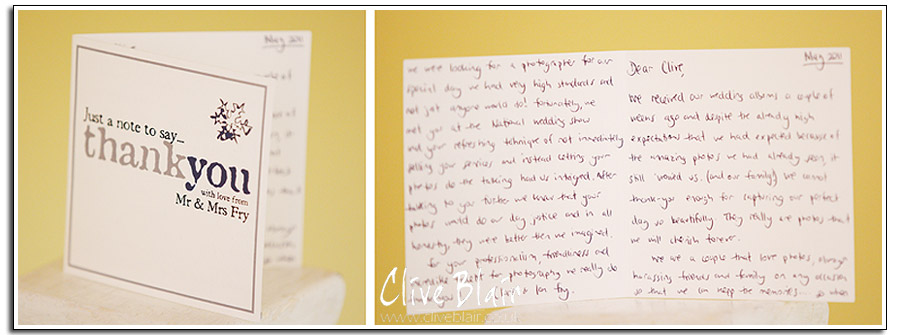 May 2011
Just a note to say_
thankyou
with love from
Mr & Mrs Fry
we were looking for a photographer for our
special day we had very high standards and
not just anyone would do! fortunately, we
met you at the National wedding show
and your refreshing technique of not immediately
selling your services and instead letting your
photos do the talking had us intrigued. After
talking to you further we knew that your
photos would do our day justice and in all
honesty, they were better then we imagined.
for your professionalism, friendliness and
for photography we really do
Fry.
May 2011
Dear Clive,
We received our wedding albums a couple of
weeks ago and despite the already high
expectations that we had expected because of
the amazing photos we had already seen, it
still 'wowed' us. (and our family!) we cannot
thank-you enough for capturing our perfect
day so beautifully. They really are photos that
we will cherish forever.
We are a couple that love photos, always
harassing friends and family on any occasion
so that we can keep the memories... so when
Clive Blair
www.cliveblair.com